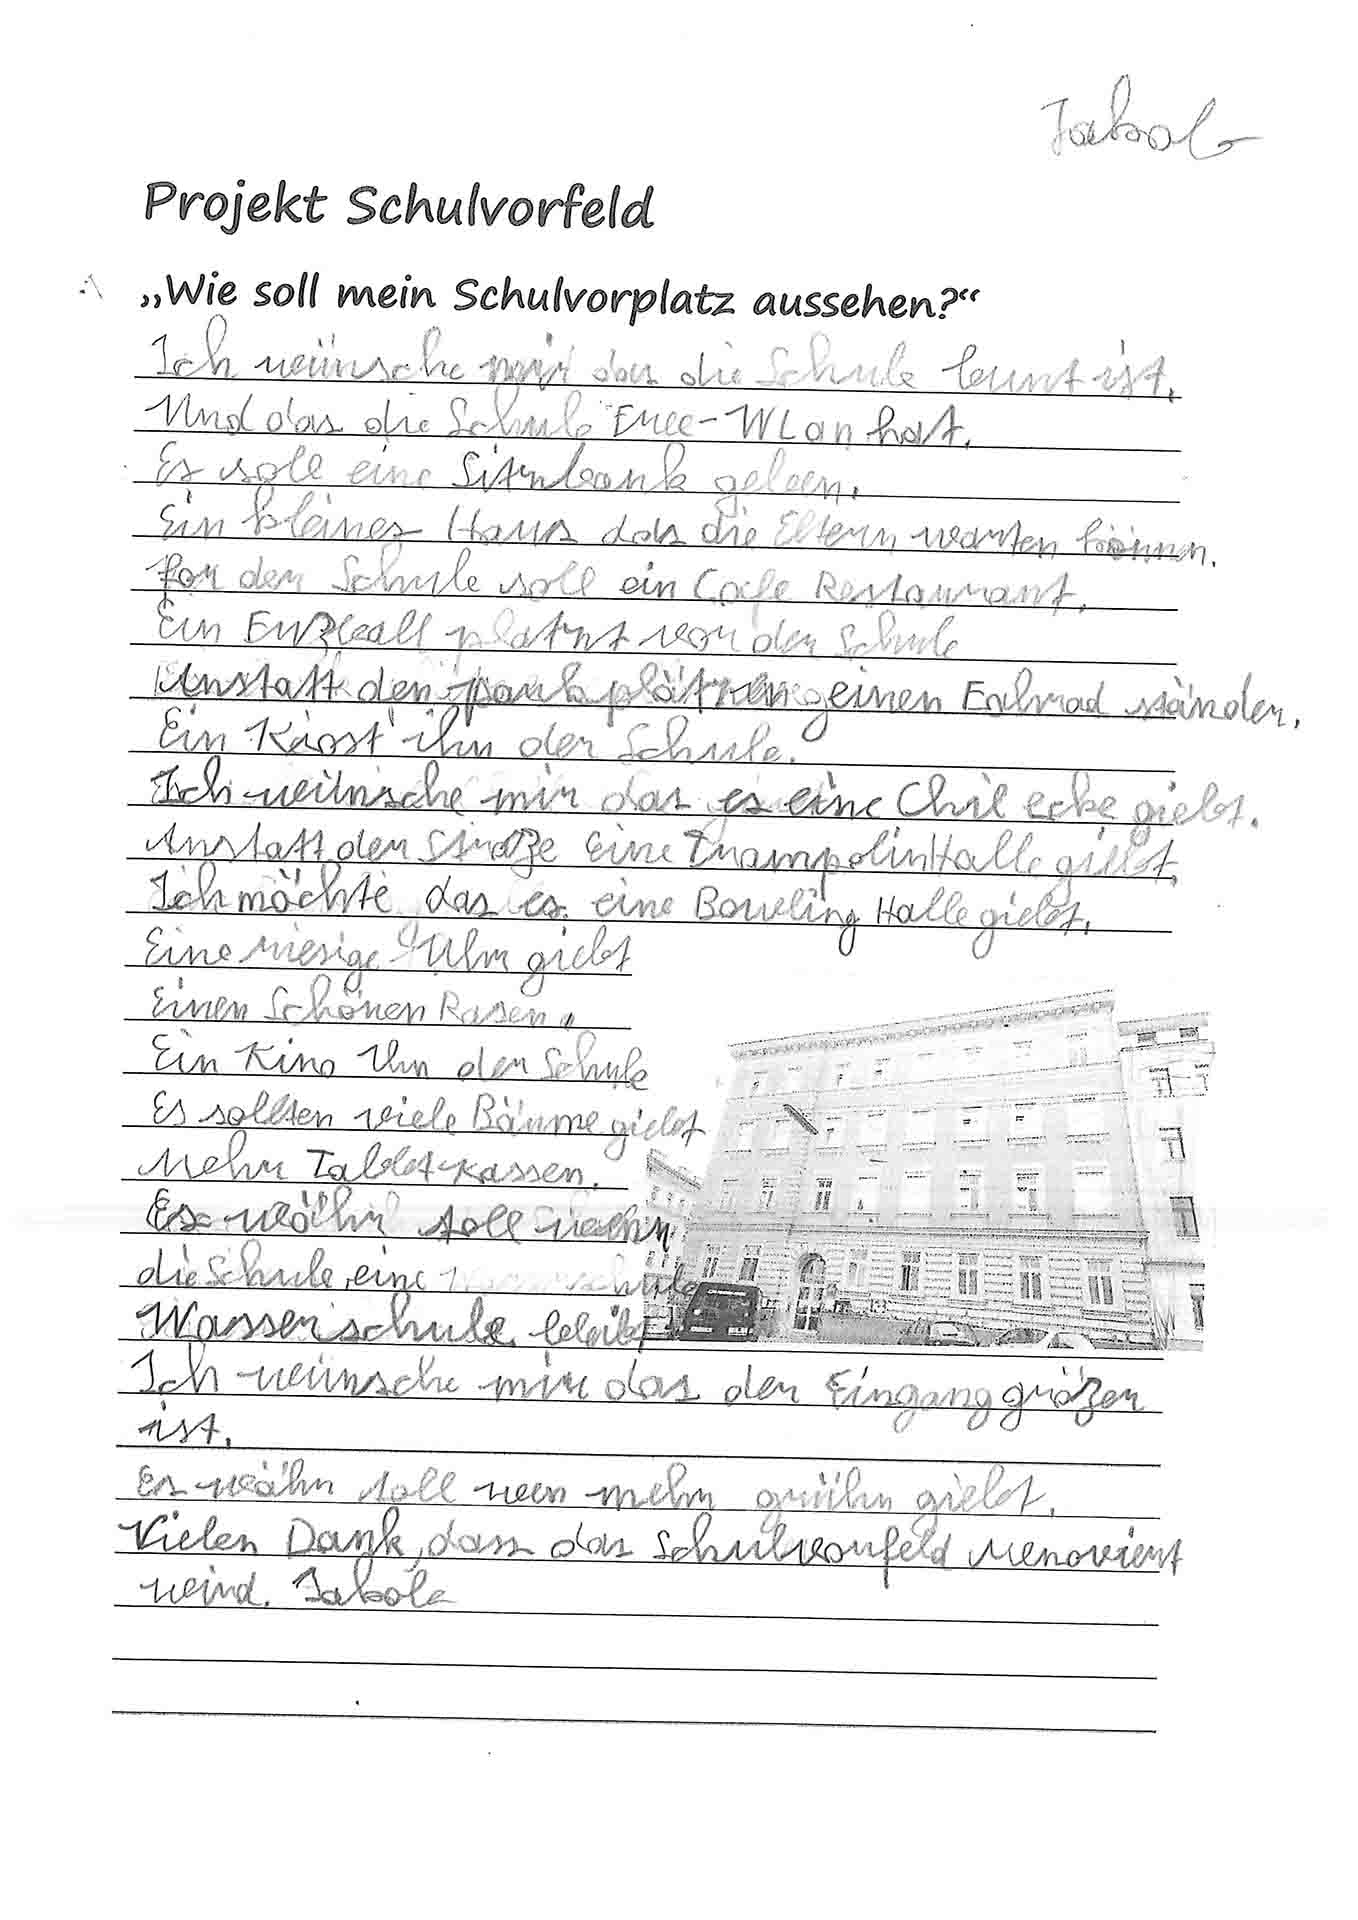 Jakob
Projekt Schulvorfeld
„Wie soll mein Schulvorplatz aussehen?“
Ich wünsche mir das die Schule bunt ist.
Und das die Schule Free-WLan hat.
Es soll eine Sitzbank geben.
Ein kleines Haus das die Eltern warten können.
for der Schule soll ein Cafe Restaurant.
Ein Fußball platzt vor der Schule
Anstatt den parkplätzen einen Fahrrad ständer.
Ein Kiost ihn der Schule.
Ich wünsche mir das es eine Chil ecke giebt.
Anstatt der Straße Eine TrampolinHalle giebt.
Ich möchte das es eine Bowling Halle giebt.
Eine riesige Uhr giebt
Einen Schönen Rasen.
Ein Kino Ihn der Schule
Es sollten viele Bäume giebt
Mehr Tablet-Kassen.
Es währ toll
die Schule eine
Wasserschule bleibt
Ich wünsche mir das der Eingang größer
ist.
Es währ toll wen mehr grühn giebt.
Vielen Dank, dass das Schulvorfeld renoviert
wird. Jakob